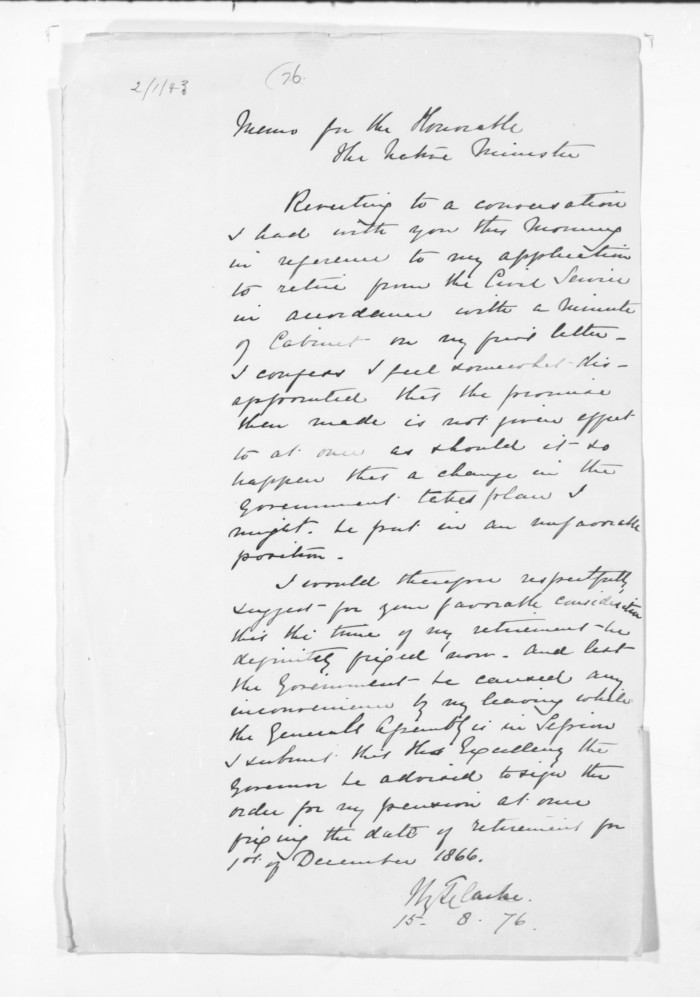 2/1/43
(26.
Memo for the Honorable
the Native Minister
Reverting to a conversation
I had with you this Morning
in reference to my application
to retire from the Civil Service
in accordance with a Minute
of Cabinet on my first letter -
I confess I feel somewhat dis-
appointed that the promise
then made is not given effect
to at once as should it so
happen that a change in the
Government takes place I
might be put in an unfavorable
position -
I would therefore respectfully
suggest for your favorable consideration
that the time of my retirement be
definitely fixed now - And lest
the Government be caused any
inconvenience by my leaving while
the General Assembly is in Session
I submit that His Excellency the
Governor be advised to sign the
order for my pension at once
fixing the date of retirement for
1st of December 1866.
HTClarke.
15. 8. 76.